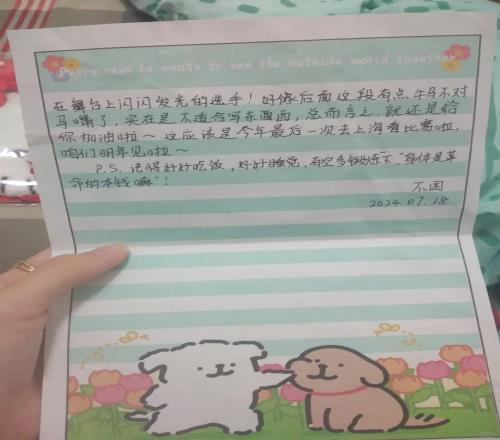 Puppy says he wants to see the outside world together
在舞台上闪闪发光的选手！好像后面这段有点牛马不对
马嘴了，实在是不适合写东西而，总而言之，就还是给
你加油啦～这应该是今年最后一次去上海看比赛啦，
咱们明年见啦～
P.S. 记得好好吃饭，好好睡觉，有空多锻炼下，“身体是革
命的本钱嘛”！
不困
2024.07.18